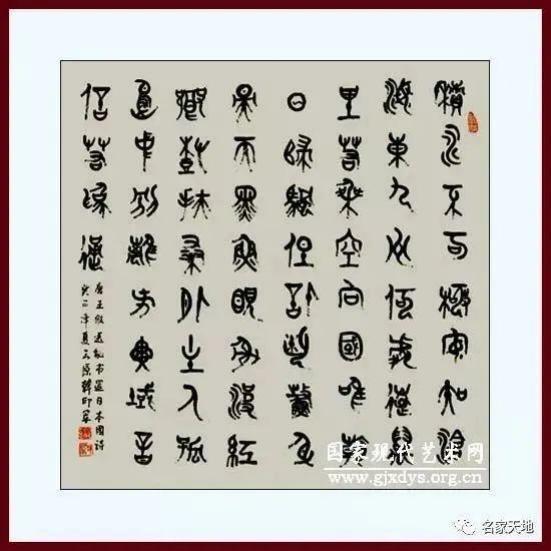 積水不可極安知滄
海東九州何處遠萬
里若乘空向國唯看
日歸帆但信風鰲身
映天黑魚眼射波紅
鄉樹扶桑外主人孤
島中別離方異域音
信若為通
唐王維送秘书還日本國詩
癸巳年夏太原韓印军
国家现代艺术网
www.gjxdys.org.cn
名家天地